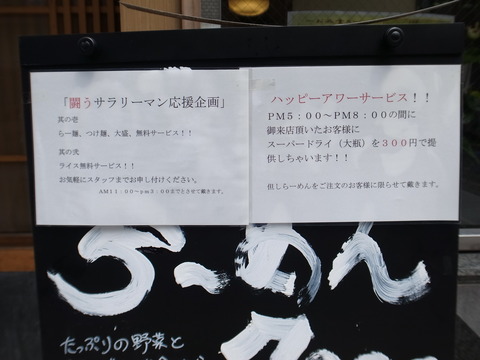 「闘うサラリーマン応援企画」
其の壱
らー麺、つけ麺、大盛、無料サービス!!
其の弐
ライス無料サービス!!
お気軽にスタッフまでお申し付けください。
AM11:00~pm3:00までとさせて戴きます。
ハッピーアワーサービス!!
PM5:00~PM8:00の間に
御来店頂いたお客様に
スーパードライ(大瓶)を300円で提
供しちゃいます!!
但しらーめんをご注文のお客様に限らせて戴きます。
らーめん
たっぷりの野菜と